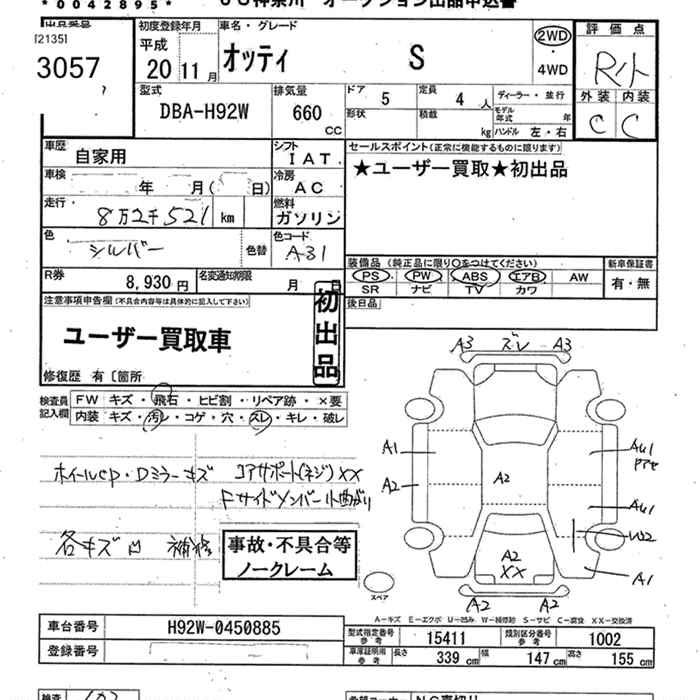 *0042895*
神奈川 オークション出品申込書
出品番号 初度登録年月 車名・グレード 評価点
[2135]
3057
平成
20 11月
オッティ S
2WD
・
4WD
R小
型式 排気量 ドア 定員 ディーラー・並行 外装 内装
DBA-H92W 660 CC 5 4人
C C
形状 積載 kg モデル年式 年
ハンドル 左・右
車歴 自家用 シフト IAT セールスポイント(正常に機能するものに限ります)
★ユーザー買取★初出品
車検 年 月(日) 冷房 AC
走行・ 8万2千521 km 燃料 ガソリン
色 シルバー 色替 色コード A31
装備品(純正品に限り○をつけてください) 新車保証書
PS PW ABS エアB AW 有・無
SR ナビ TV カワ
R券 8,930円 名変通知期限 月 日
後日品
注意事項申告欄(不具合内容等は具体的に記入して下さい)
初出品
ユーザー買取車
修復歴 有〔箇所
検査員記入欄 FW キズ・飛石・ヒビ割・リペア跡・×要
内装 キズ・汚レ・コゲ・穴・スレ・キレ・破レ
A3 ズレ A3
A1 A2 A2
ホイールCP・Dミラーキズ コアサポート(ネジ)XX
Fサイドメンバー小曲がり
AU1
アアセ
AU1
W2
A1
各キズ凹 補修
事故・不具合等
ノークレーム
A2
XX
A2 A2
スペア
A-キズ E-エクボ U-凹み W-補修跡 S-サビ C-腐食 XX-交換済
車台番号 H92W-0450885
型式指定番号 参考 15411 類別区分番号 参考 1002
登録番号
車庫証明用 参考 長さ 339cm 幅 147cm 高さ 155cm
検査